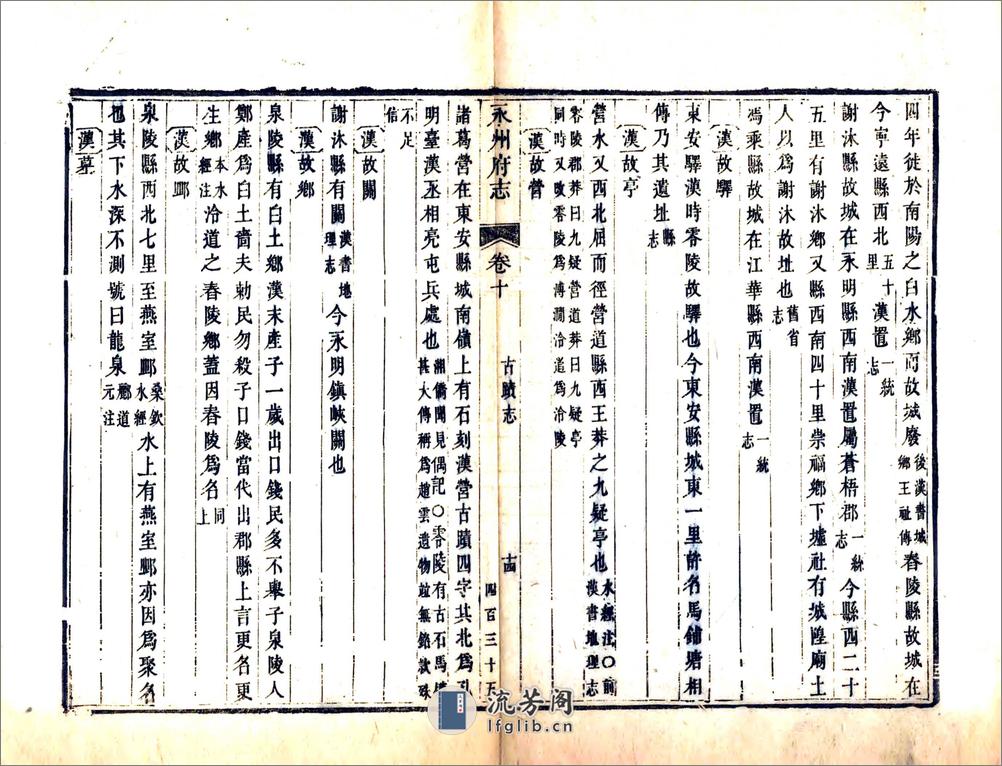 四年徙於南陽之白水鄉而故城廢後漢書城鄉王祉傳舂陵縣故城在
今寧遠縣西北五十里漢置一統志
謝沐縣故城在永明縣西南漢置屬蒼梧郡一統志今縣西二十
五里有謝沐鄉又縣西南四十里崇福鄉下墟社有城隍廟土
人以爲謝沐故址也舊省志
馮乘縣故城在江華縣西南漢置一統志
漢故驛
東安驛漢時零陵故驛也今東安縣城東一里許名馬鋪塘相
傳乃其遺址縣志
漢故亭
營水又西北屈而徑營道縣西王莽之九疑亭也水經注〇前漢書地理志
零陵郡莽曰九疑營道莽曰九疑亭
同時又改零陵爲溥瀾泠道爲泠陵
漢故營
永州府志
卷十
古蹟志
十四
四百三十五
諸葛營在東安縣城南嶺上有石刻漢營古蹟四字其北爲孔
明臺漢丞相亮屯兵處也湘僑聞見偶記〇零陵有古石馬槽甚大傳稱爲趙雲遺物竝無銘款殊
不足
信
漢故關
謝沐縣有關漢書地理志今永明鎮峽關也
漢故鄉
泉陵縣有白土鄉漢末產子一歲出口錢民多不舉子泉陵人
鄭產爲白土嗇夫勅民勿殺子口錢當代出郡縣上言更名更
生鄉本水經注泠道之舂陵鄉蓋因舂陵爲名同上
漢故郦
泉陵縣西北七里至燕室郦桑欽水經水上有燕室郦亦因爲聚名
也其下水深不測號曰龍泉酈道元注
漢墓